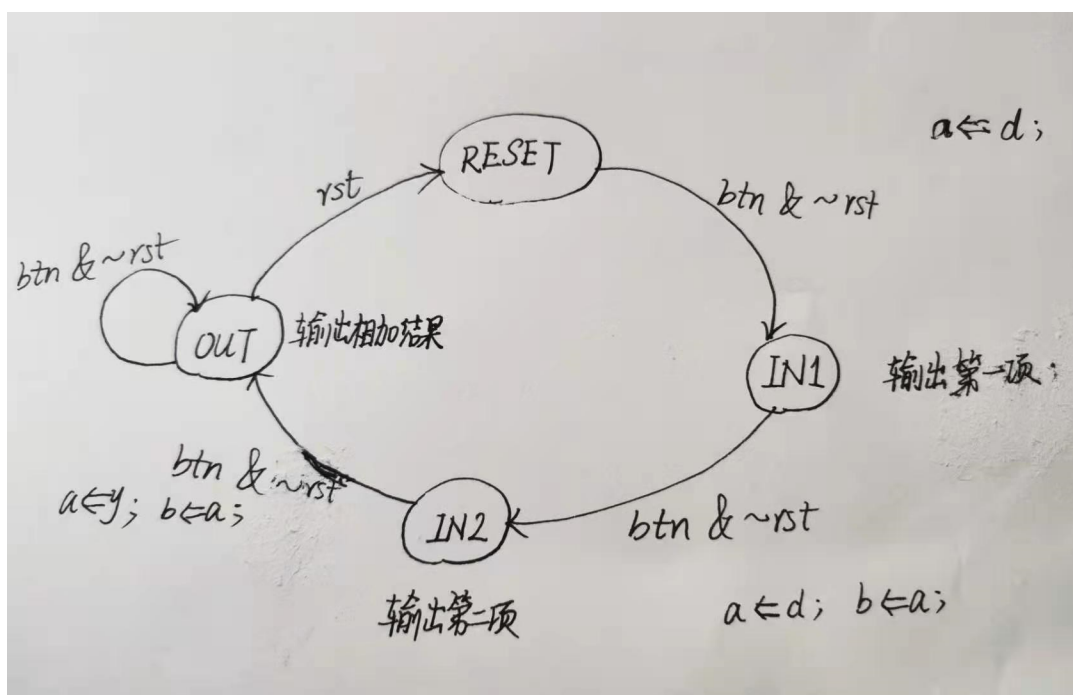 a⇐d;
RESET
rst
btn & ~rst
btn & ~rst
OUT
输出相加结果
IN1
输出第一项;
btn & ~rst
a⇐y; b⇐a;
IN2
btn & ~rst
输出第二项
a⇐d; b⇐a;